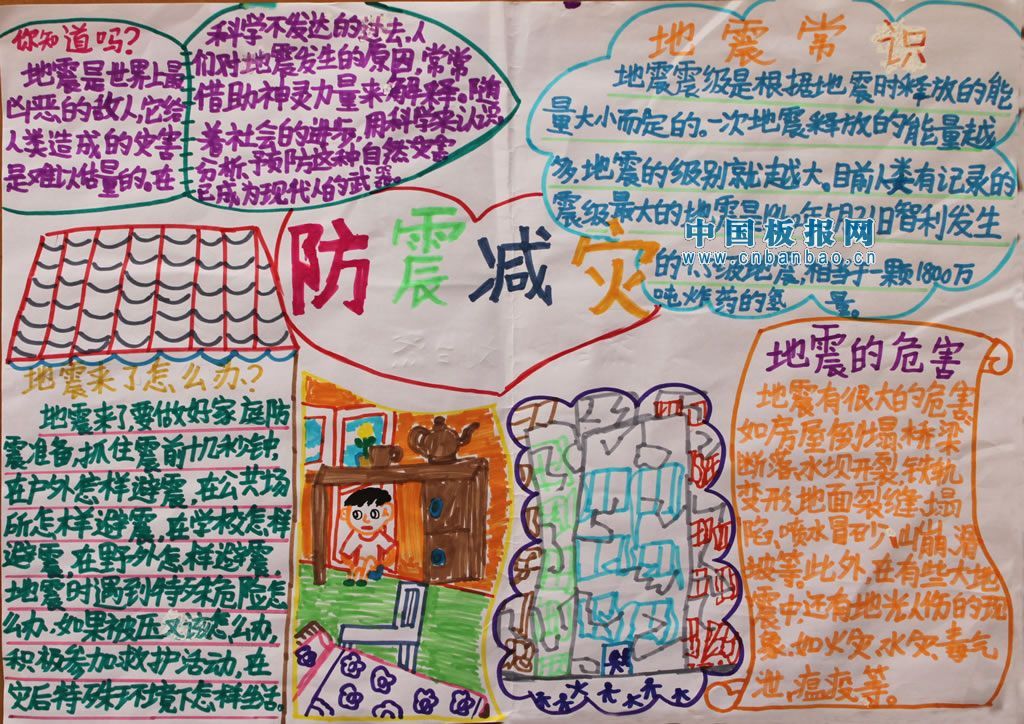 你知道吗?
地震是世界上最
凶恶的敌人,它给
人类造成的灾害
是难以估量的。在
科学不发达的过去,人
们对地震发生的原因,常常
借助神灵力量来解释。随
着社会的进步,用科学来认识、
分析、预防这种自然灾害
已成为现代人的武器。
地震常识
地震震级是根据地震时释放的能
量大小而定的。一次地震释放的能量越
多,地震的级别就越大。目前人类有记录的
震级最大的地震是 年5月21日智利发生
中国板报网
www.cnbanbao.cn
的 级地震,相当于一颗1800万
吨炸药的 量。
防震减灾
地震来了怎么办?
地震来了,要做好家庭防
震准备,抓住震前十几秒钟,
在户外怎样避震,在公共场
所怎样避震,在学校怎样
避震,在野外怎样避震,
地震时遇到特殊危险怎
么办,如果被压 该怎么办,
积极参加救护活动,在
灾后特殊环境下怎样生活。
地震的危害
地震有很大的危害,
如房屋倒塌,桥梁
断落,水坝开裂,铁轨
变形,地面裂缝、塌
陷,喷水冒砂,山崩、滑
坡等。此外,在有些大地
震中,还有地光人伤的现
象,如火灾、水灾、毒气
泄,瘟疫等。